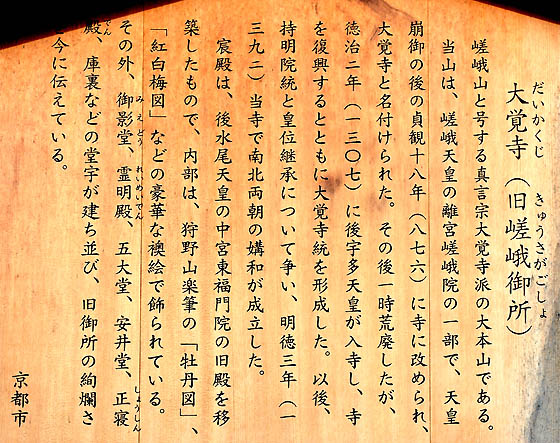 だいかくじ きゅうさがごしょ
大覚寺（旧嵯峨御所）
嵯峨山と号する真言宗大覚寺派の大本山である。
当山は、嵯峨天皇の離宮嵯峨院の一部で、天皇
崩御の後の貞観十八年（八七六）に寺に改められ、
大覚寺と名付けられた。その後一時荒廃したが、
徳治二年（一三〇七）に後宇多天皇が入寺し、寺
を復興するとともに大覚寺統を形成した。以後、
持明院統と皇位継承について争い、明徳三年（一
三九二）当寺で南北両朝の媾和が成立した。
宸殿は、後水尾天皇の中宮東福門院の旧殿を移
築したもので、内部は、狩野山楽筆の「牡丹図」、
「紅白梅図」などの豪華な襖絵で飾られている。
みえどう れいめいでん しょうしん
その外、御影堂、霊明殿、五大堂、安井堂、正寝
でん
殿、庫裏などの堂宇が建ち並び、旧御所の絢爛さ
今に伝えている。
京都市